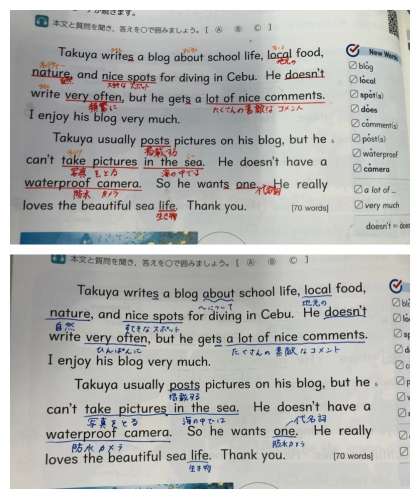 本文と質問を聞き、答えを○で囲みましょう。[ Ⓐ Ⓑ Ⓒ ]
Takuya writes a blog about school life, local food,
地元の
nature, and nice spots for diving in Cebu. He doesn't
自然 すてきな スポット
write very often, but he gets a lot of nice comments.
頻繁に たくさんの 素敵な コメント
I enjoy his blog very much.
Takuya usually posts pictures on his blog, but he
掲載する
can't take pictures in the sea. He doesn't have a
写真 をとる 海の中では
waterproof camera. So he wants one. He really
防水 カメラ 代名詞
loves the beautiful sea life. Thank you. [70 words]
生き物
New Words
blog
local
spot(s)
does
comment(s)
post(s)
waterproof
camera
a lot of ...
very much
doesn't
本文と質問を聞き、答えを○で囲みましょう。[ Ⓐ Ⓑ Ⓒ ]
Takuya writes a blog about school life, local food,
について 地元の
nature, and nice spots for diving in Cebu. He doesn't
自然 すてきな スポット
write very often, but he gets a lot of nice comments.
ひんぱんに たくさんの 素敵な コメント
I enjoy his blog very much.
Takuya usually posts pictures on his blog, but he
掲載する
can't take pictures in the sea. He doesn't have a
写真をとる 海の中では 代名詞
waterproof camera. So he wants one. He really
防水 カメラ 防水カメラ
loves the beautiful sea life. Thank you. [70 words]
生き物